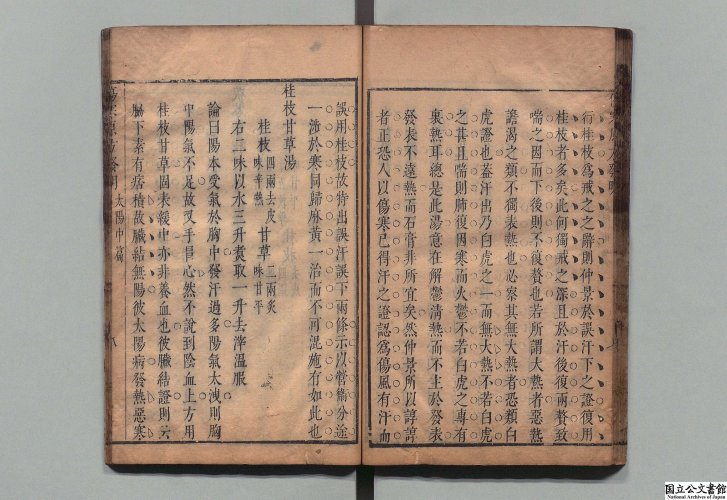 行桂枝爲戒之之辭則仲景於誤汗下之證復用
桂枝者多矣此何獨戒之深且於汗後復兩贅致
喘之因而下後則不復贅也若所謂大熱者惡熱
譫渴之類不獨表熱也必察其無大熱者恐類白
虎證也蓋汗出乃白虎之一而無大熱不若白虎
之甚且喘則肺復因寒而火鬱不若白虎之專有
裏熱耳總是此湯意在解鬱淸熱而不主於發表
發表不遠熱而石膏非所宜矣然仲景所以諄諄
者正恐人以傷寒已得汗之證認爲傷風有汗而
誤用桂枝故特出誤汗誤下兩條示以營衞分途
一涉於寒同歸麻黃一治而不可混施有如此也
桂枝甘草湯
桂枝 四兩去皮 味辛熱 甘草 二兩炙 味甘平
右二味以水三升煑取一升去滓溫服
論曰陽本受氣於胸中發汗過多陽氣太洩則胸
中陽氣不足故叉手冒心然不說到陰血上方用
桂枝甘草固表緩中亦非養血也彼臟結證則云
脇下素有痞積故臟結無陽彼太陽病發熱惡寒
太陽中篇
八
国立公文書館
National Archives of Japan